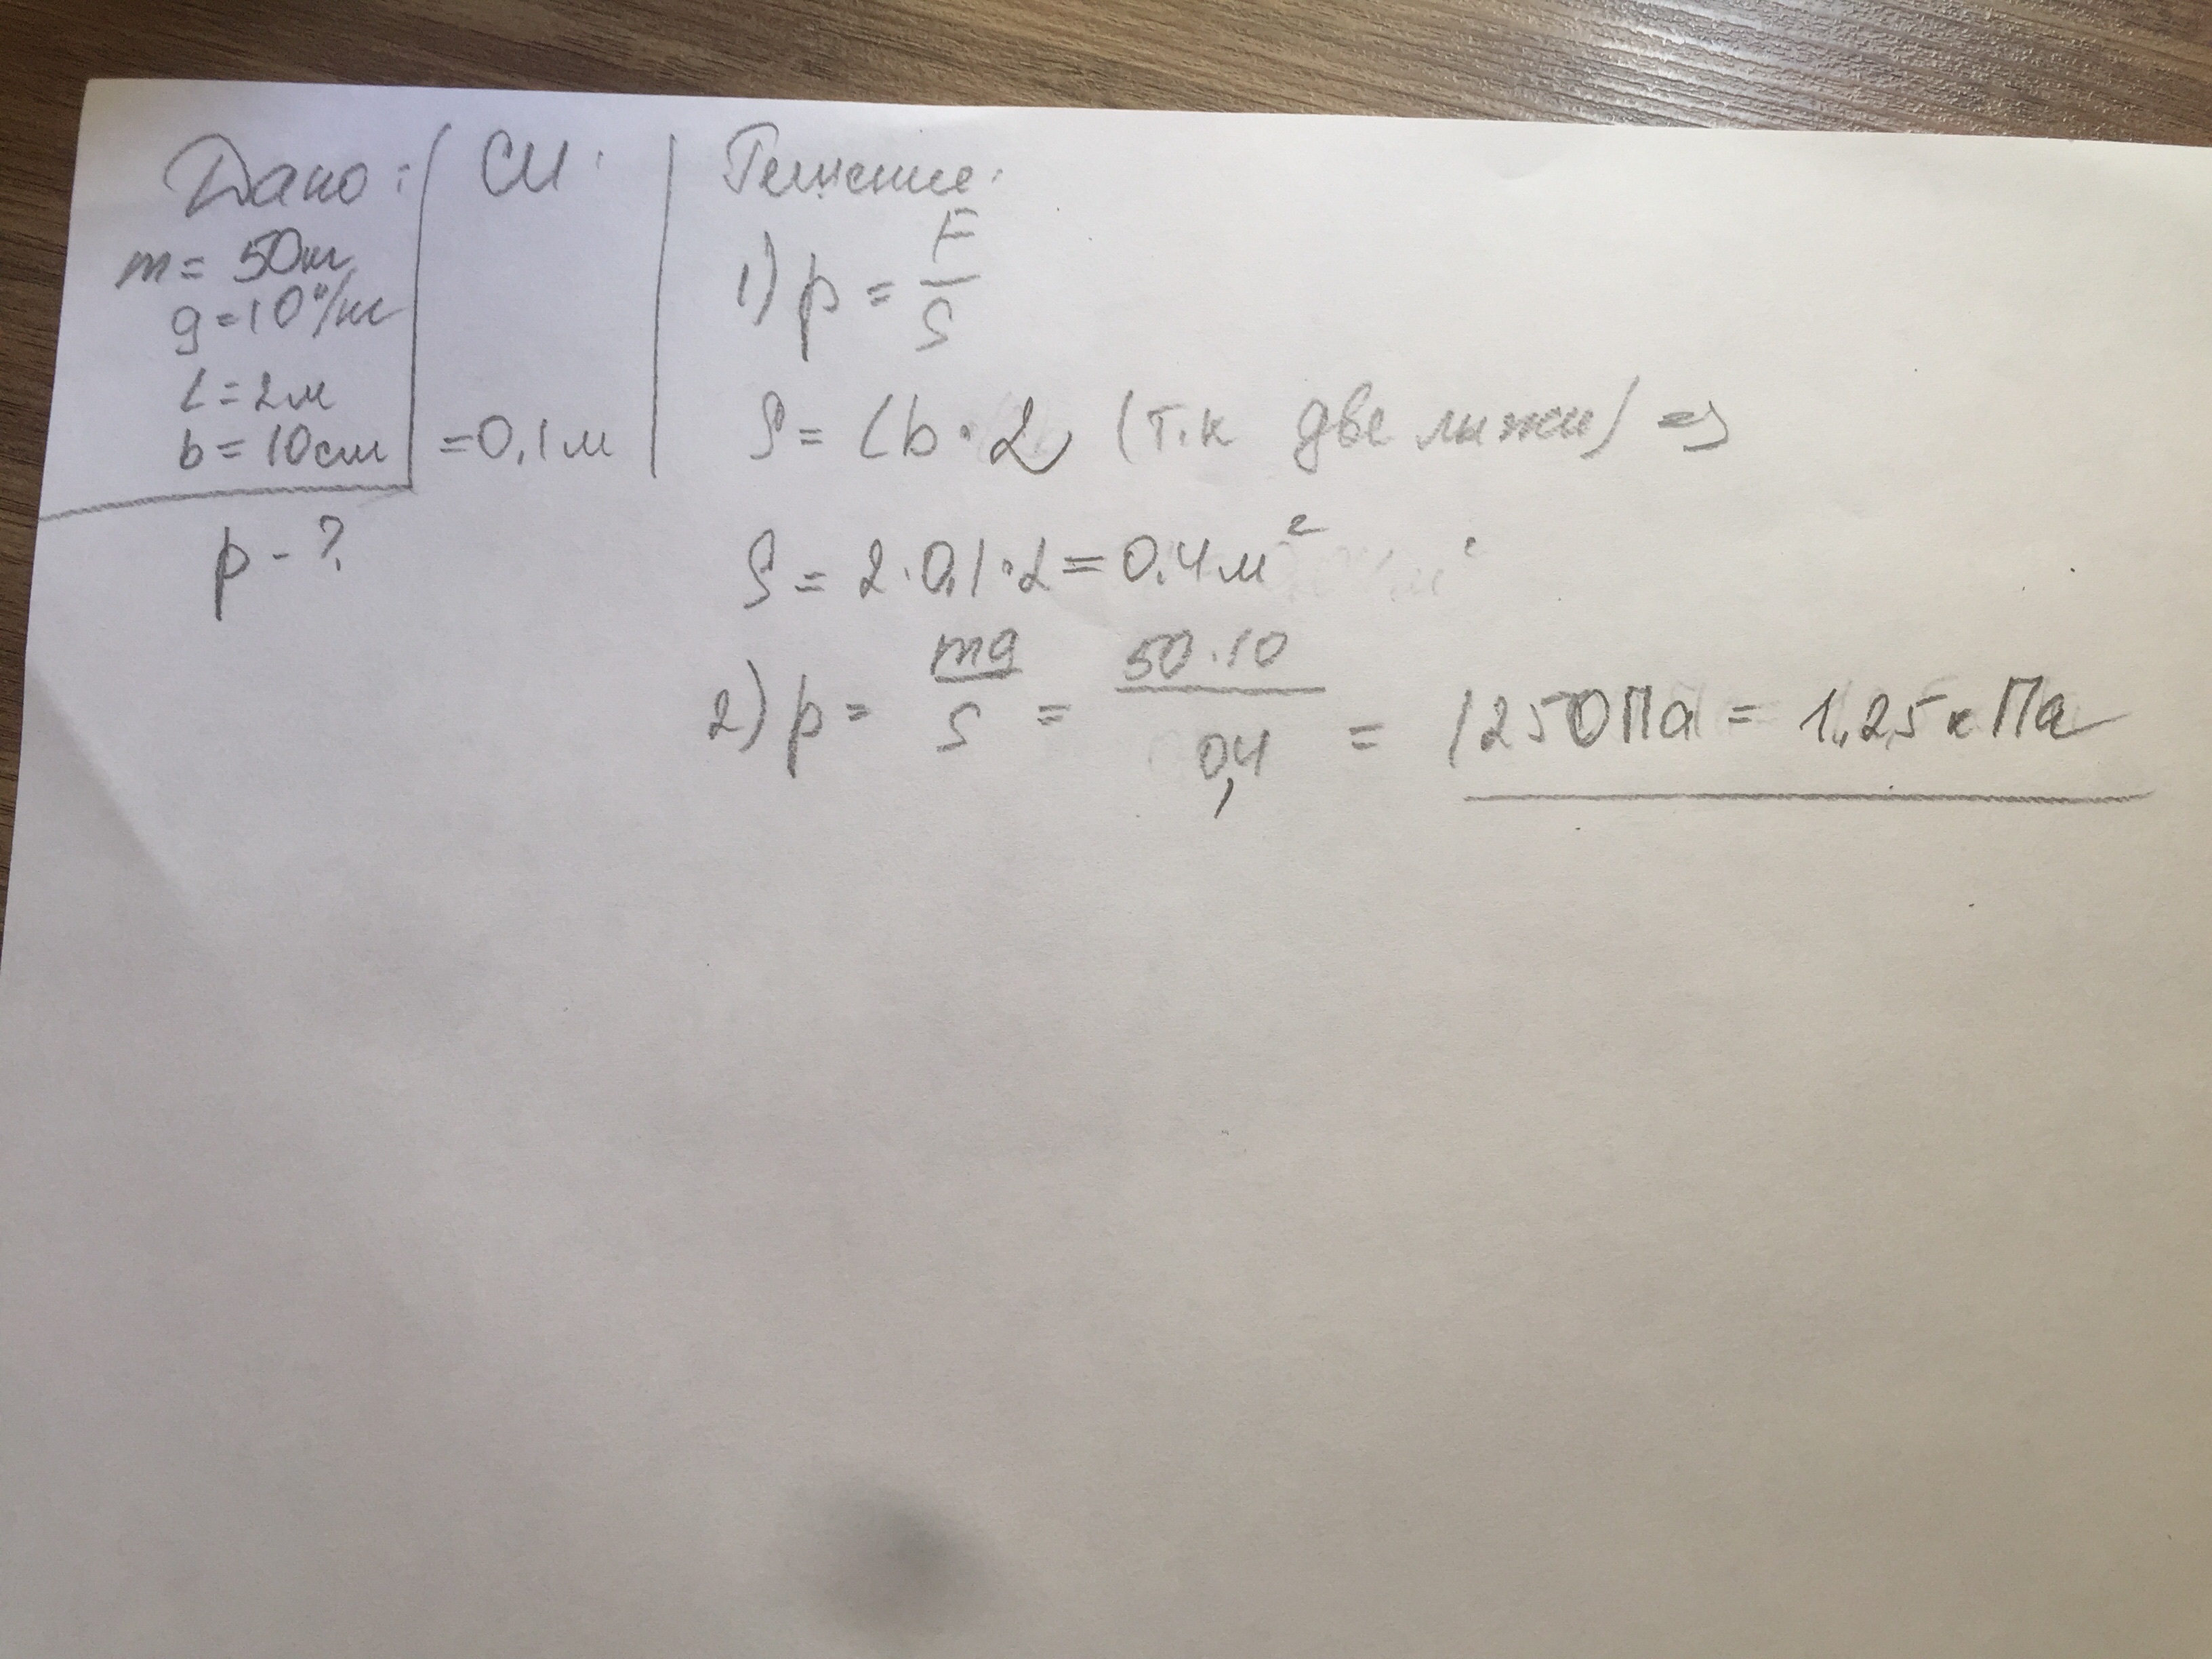 Дано:
m = 50кг
g = 10 Н/кг
L = 2м
b = 10см
p - ?
СИ:
= 0,1м
Решение:
1) p = F/S
S = Lb · 2 (т.к две лыжи) =>
S = 2 · 0,1 · 2 = 0,4 м²
2) p = mg/S = 50·10/0,4 = 1250Па = 1,25кПа